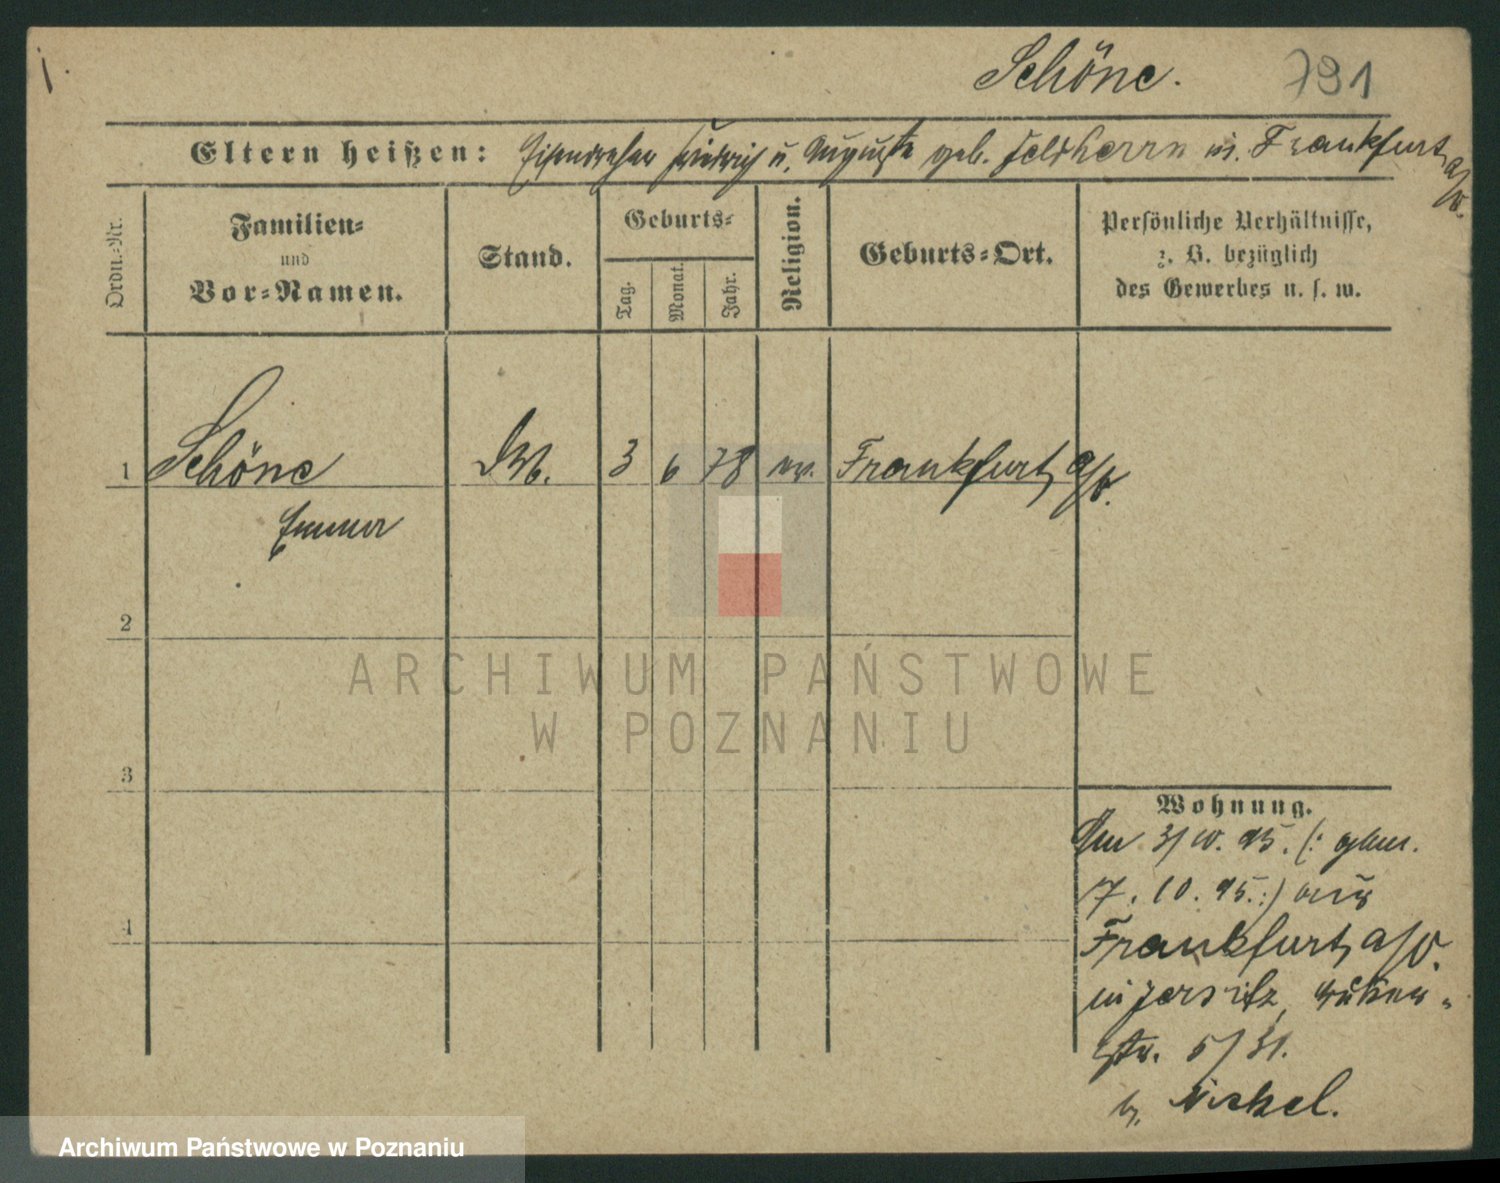 Schöne.
791
Eltern heißen: Eisendreher Friedrich u. Auguste geb. Feldherrn in Frankfurt a/O.
Ordn.-Nr.
Familien-
und
Vor-Namen.
Stand.
Geburts-
Tag.
Monat.
Jahr.
Religion.
Geburts-Ort.
Persönliche Verhältnisse,
z. B. bezüglich
des Gewerbes u. s. w.
1 Schöne 3 6 78 ev. Frankfurt a/O.
Emma
2
3
4
Wohnung.
Am 3/10. 95. (: gem.
17. 10. 95. :) aus
Frankfurt a/O.
in Jersitz,
str. 5/31.
b. Nickel.
ARCHIWUM PAŃSTWOWE
W POZNANIU
Archiwum Państwowe w Poznaniu